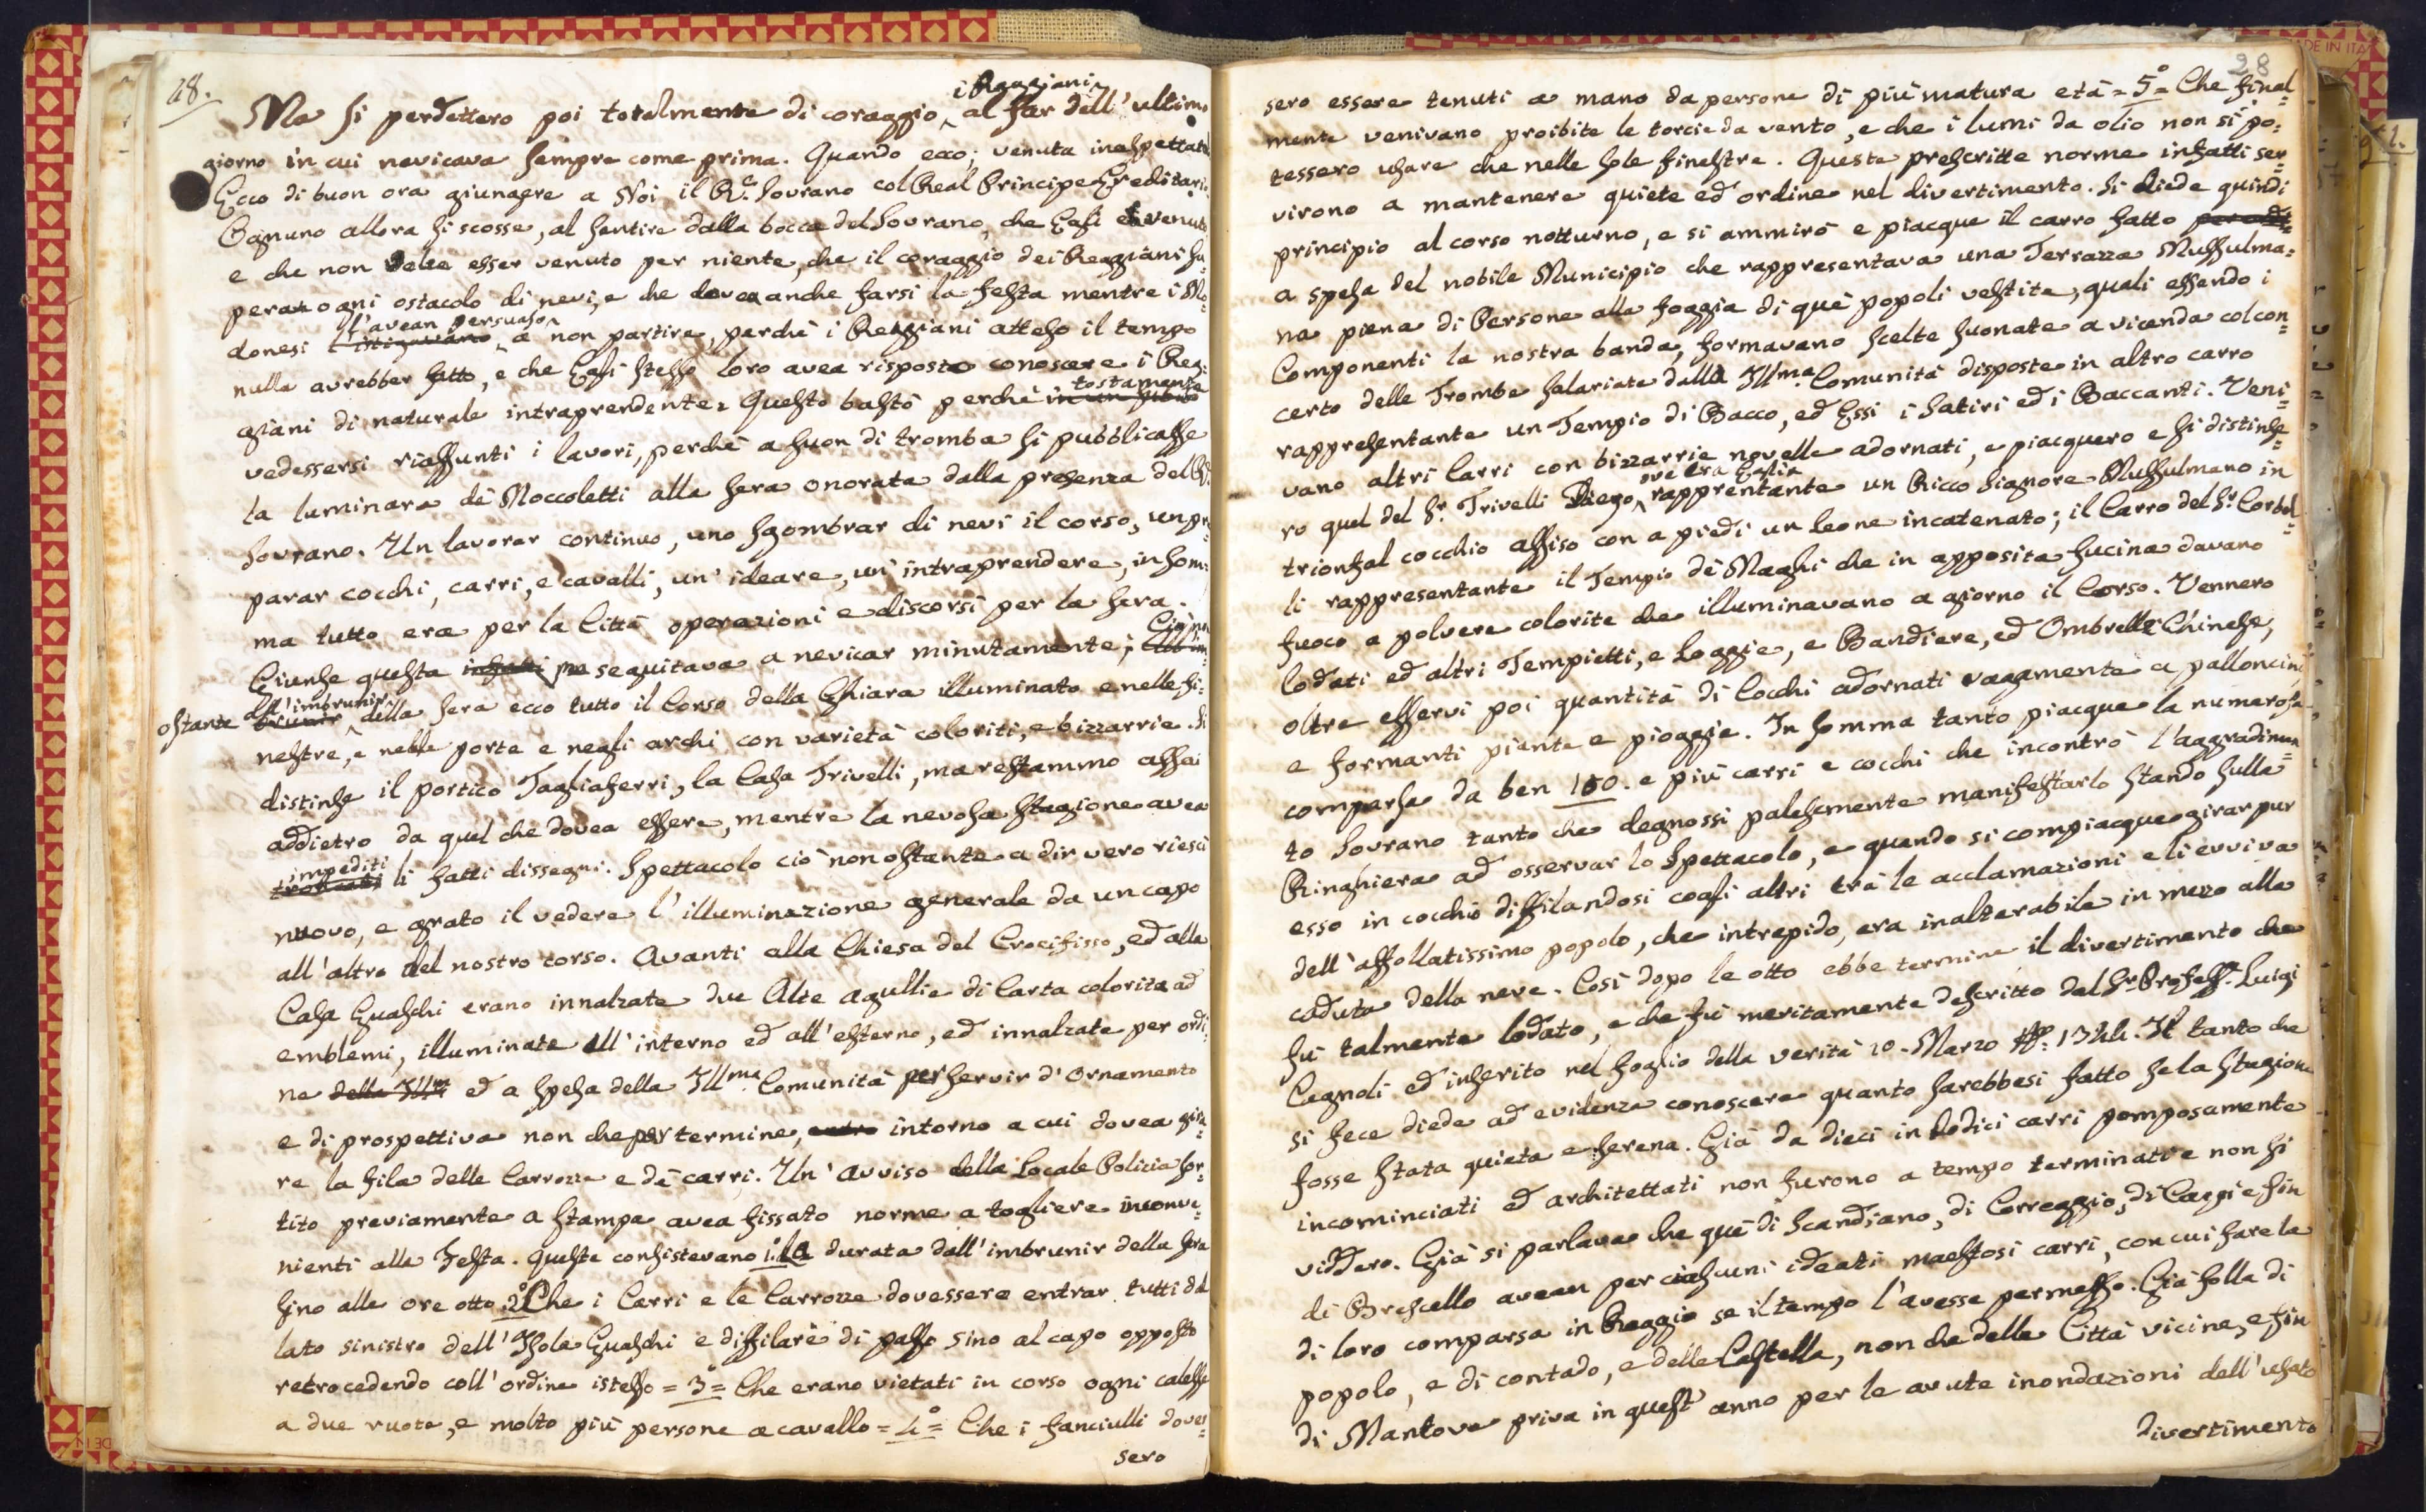 28.
i Reggiani
Ma si perdettero poi totalmente di coraggio, al far dell'ultimo
giorno in cui nevicava sempre come prima. Quando ecco; venuta inaspettata
Ecco di buon ora giungere a Noi il R.e Sovrano col Real Principe Ereditario
Ognuno allora si scosse, al sentire dalla bocca del Sovrano, che Egli era venuto
e che non volea esser venuto per niente, che il coraggio dei Reggiani su=
perava ogni ostacolo di nevi, e che dovea anche farsi la festa mentre i Mo=
l'avean persuaso
donesi l'istigavano a non partire, perchè i Reggiani atteso il tempo
nulla avrebber fatto, e che Egli stesso loro avea risposto conoscere i Reg=
giani di naturale intraprendente. Questo bastò perchè in un subito
tostamente
vedessersi riassunti i lavori, perchè a suon di tromba si pubblicasse
la luminara dè Moccoletti alla sera onorata dalla presenza del R.
Sovrano. Un lavorar continuo, uno sgombrar di nevi il corso, un pre=
parar cocchi, carri, e cavalli, un'ideare, un'intraprendere, in som=
ma tutto era per la Città operazioni e discorsi per la sera.
Ciò non
Giunse questa infatti ma seguitava a nevicar minutamente;
all'imbrunir
ostante brunir della sera ecco tutto il Corso della Ghiara illuminato e nelle fi=
nestre, e nelle porte e negli archi con varietà coloriti, e bizzarrie. Si
distinse il portico Tagliaferri, la Casa Trivelli, ma restammo assai
addietro da quel che dovea essere, mentre la nevosa stagione avea
impediti
troncati li fatti dissegni. Spettacolo ciò non ostante a dir vero riescì
nuovo, e grato il vedere l'illuminazione generale da un capo
all'altro del nostro corso. Avanti alla Chiesa del Crocifisso, ed alla
Casa Guaschi erano innalzate due Alte agullie di Carta colorita ad
emblemi, illuminate all'interno ed all'esterno, ed innalzate per ordi=
ne della Ill.ma ed a spesa della Ill.ma Comunità per servir d'ornamento
e di prospettiva non che per termine, entro intorno a cui dovea gira=
re la fila delle Carrozze e dè carri. Un'avviso della Locale Polizia sor=
tito previamente a stampa avea fissato norme a togliere inconve=
nienti alla Festa. Queste consistevano 1.° La durata dall'imbrunir della sera
sino alle ore otto 2.° Che i Carri e le Carrozze dovessere entrar tutti dal
lato sinistro dell'Isola Guaschi e diffilare di passo sino al capo opposto
retrocedendo coll'ordine istesso = 3.° = Che erano vietati in corso ogni calesse
a due ruote, e molto più persone a cavallo = 4.° = Che i fanciulli doves=
sero
28
sero essere tenuti a mano da persone di più matura età = 5.° = Che final=
mente venivano proibite le torcie da vento, e che i lumi da olio non si po=
tessero usare che nelle sole finestre. Queste prescritte norme infatti ser=
virono a mantenere quiete ed ordine nel divertimento. Si diede quindi
principio al corso notturno, e si ammirò e piacque il carro fatto per ordi=
a spesa del nobile Municipio che rappresentava una Terrazza Mussulma=
na piena di Persone alla foggia di què popoli vestite, quali essendo i
Componenti la nostra banda, formavano scelte suonate a vicenda col con=
certo delle Trombe salariate dalla Ill.ma Comunità disposte in altro carro
rappresentante un Tempio di Bacco, ed Essi i Satiri ed i Baccanti. Veni=
vano altri Carri con bizzarrie novelle adornati, e piacquero e si distinse=
ove era Egli
ro quel del Sr. Trivelli Diego, rapprentante un Ricco Signore Mussulmano in
trionfal cocchio assiso con a piedi un leone incatenato; il Carro del Sr. Corbel=
li rappresentante il Tempio dè Maghi che in apposita fucina davano
fuoco a polvere colorite che illuminavano a giorno il Corso. Vennero
lodati ed altri Tempietti, e Loggie, e Bandiere, ed Ombrelle Chinese,
oltre esservi poi quantità di Cocchi adornati vagamente a palloncini
e formanti piante e pioggie. In somma tanto piacque la numerosa
comparsa da ben 100. e più carri e cocchi che incontrò l'aggradimen=
to Sovrano tanto che degnossi palesemente manifestarlo stando sulla
Ringhiera ad osservar lo Spettacolo, e quando si compiacque girar pur
esso in cocchio diffilandosi cogli altri trà le acclamazioni e li evviva
dell'affollatissimo popolo, che intrepido, era inalterabile in mezo alla
caduta della neve. Così dopo le otto ebbe termine il divertimento che
fù talmente lodato, e che fù meritamente descritto dal Sr. Profess.r Luigi
Cagnoli ed inserito nel foglio della verità 20. Marzo 1844. Il tanto che
si fece diede ad evidenza conoscere quanto sarebbesi fatto se la stagione
fosse stata quieta e serena. Già da dieci in dodici carri pomposamente
incominciati ed architettati non furono a tempo terminati e non si
viddero. Già si parlava che què di Scandiano, di Correggio, di Carpi e fin
di Brescello avean per ciascuni ideati maestosi carri, con cui fare la
di loro comparsa in Reggio se il tempo l'avesse permesso. Già folla di
popolo, e di contado, e delle Castella, non che delle Città vicine, e fin
di Mantova priva in quest'anno per le avute inondazioni dell'usato
divertimento